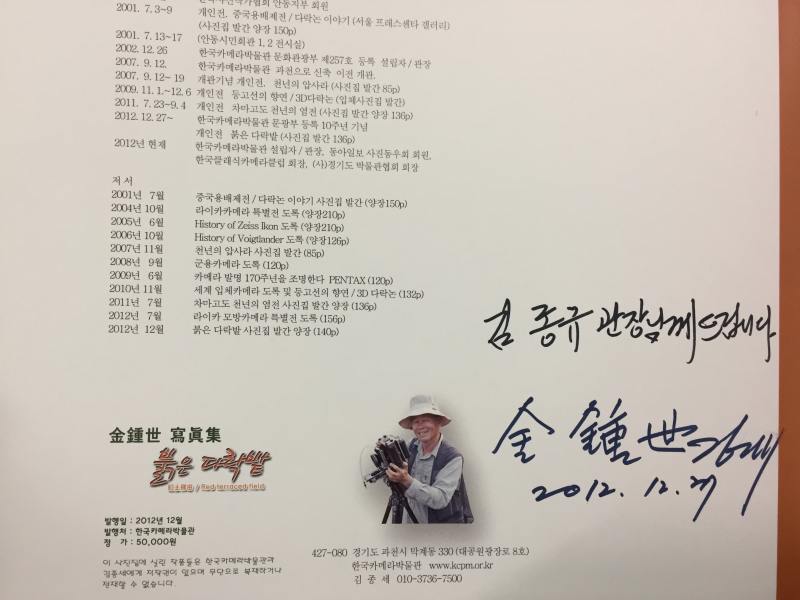 한국사진작가협회 안동지부 회원
2001. 7. 3~9 개인전, 중국용배제전 / 다락논 이야기 (서울 프레스센타 갤러리)
(사진집 발간 양장 150p)
2001. 7. 13~17 (안동시민회관 1, 2 전시실)
2002. 12. 26 한국카메라박물관 문화관광부 제257호 등록 설립자 / 관장
2007. 9. 12. 한국카메라박물관 과천으로 신축 이전 개관.
2007. 9. 12~ 19 개관기념 개인전, 천년의 압사라 (사진집 발간 85p)
2009. 11. 1.~12. 6 개인전 등고선의 향연 / 3D다락논 (입체사진집 발간)
2011. 7. 23~9. 4 개인전 차마고도 천년의 염전 (사진집 발간 양장 136p)
2012. 12. 27~ 한국카메라박물관 문광부 등록 10주년 기념
개인전 붉은 다락밭 (사진집 발간 136p)
2012년 현재 한국카메라박물관 설립자 / 관장, 동아일보 사진동우회 회원,
한국클래식카메라클럽 회장, (사)경기도 박물관협회 회장
저 서
2001년 7월 중국용배제전 / 다락논 이야기 사진집 발간 (양장150p)
2004년 10월 라이카카메라 특별전 도록 (양장210p)
2005년 6월 History of Zeiss Ikon 도록 (양장210p)
2006년 10월 History of Voigtlander 도록 (양장126p)
2007년 11월 천년의 압사라 사진집 발간 (85p)
2008년 9월 군용카메라 도록 (120p)
2009년 6월 카메라 발명 170주년을 조명한다 PENTAX (120p)
2010년 11월 세계 입체카메라 도록 및 등고선의 향연 / 3D 다락논 (132p)
2011년 7월 차마고도 천년의 염전 사진집 발간 양장 (136p)
2012년 7월 라이카 모방카메라 특별전 도록 (156p)
2012년 12월 붉은 다락밭 사진집 발간 양장 (140p)
김 종규 관장님께 드립니다
金 鍾 世 김종세
2012. 12. 27
金鍾世 寫眞集
붉은 다락밭
紅土梯田 / Red terraced field
발행일 : 2012년 12월
발행처 : 한국카메라박물관
정 가 : 50,000원
이 사진집에 실린 작품들은 한국카메라박물관과
김종세에게 저작권이 있으며 무단으로 복제하거나
전재할 수 없습니다.
427-080 경기도 과천시 막계동 330 (대공원광장로 8호)
한국카메라박물관 www.kcpm.or.kr
김 종 세 010-3736-7500